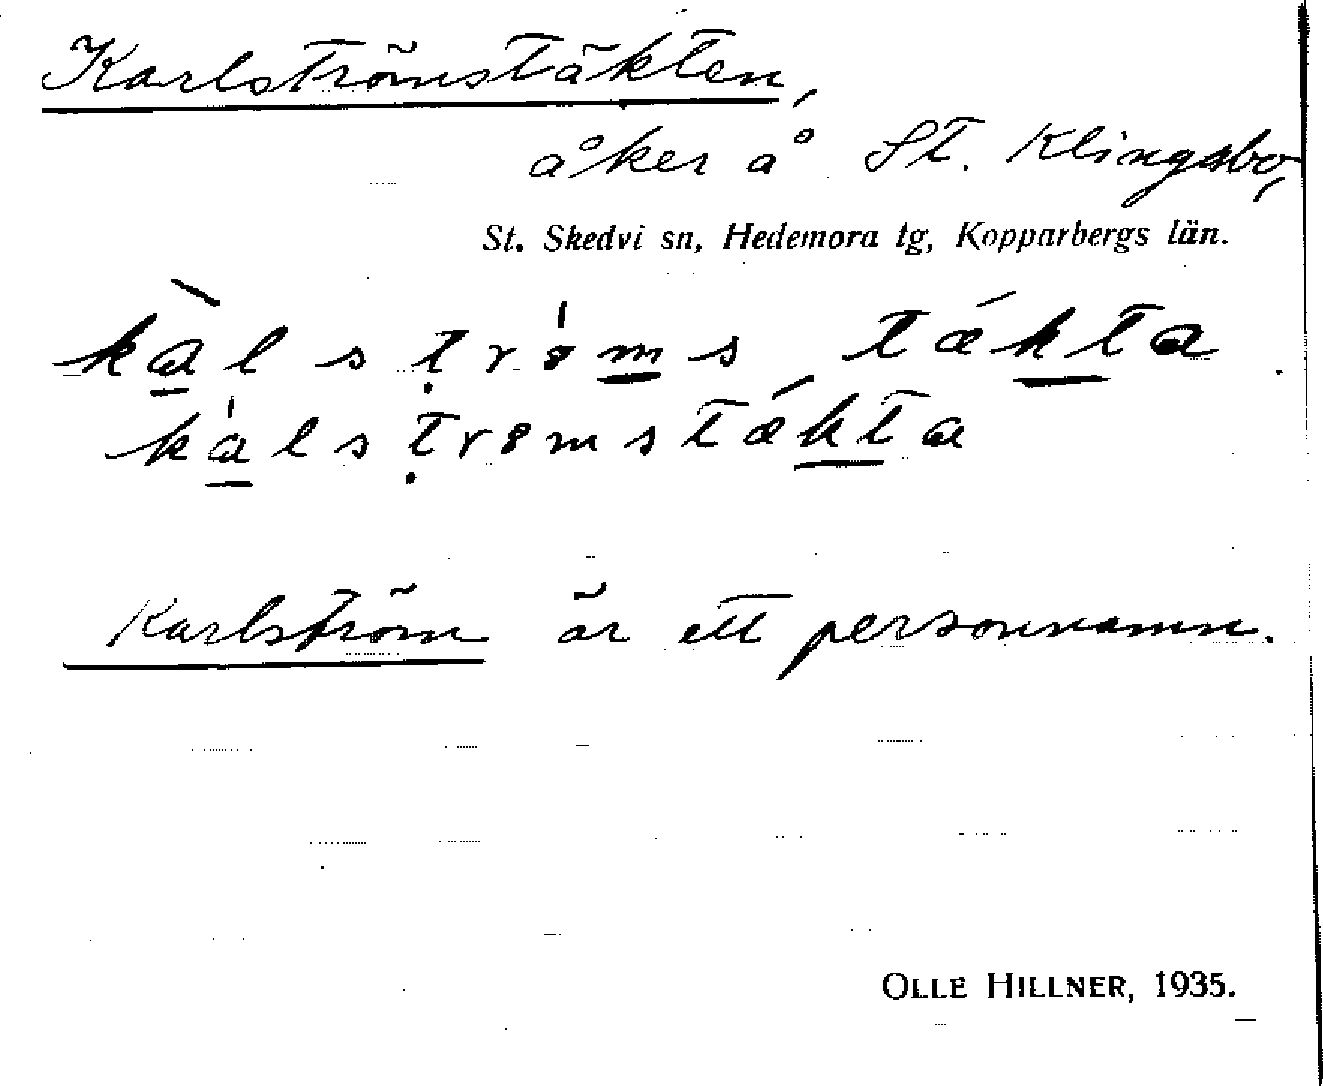 Karlströmstäkten,
åker å St. Klingsbo,
St. Skedvi sn, Hedemora tg, Kopparbergs län.
kàlstrøms tækta
kàlstrømstækta
Karlström är ett personnamn.
OLLE HILLNER, 1935.